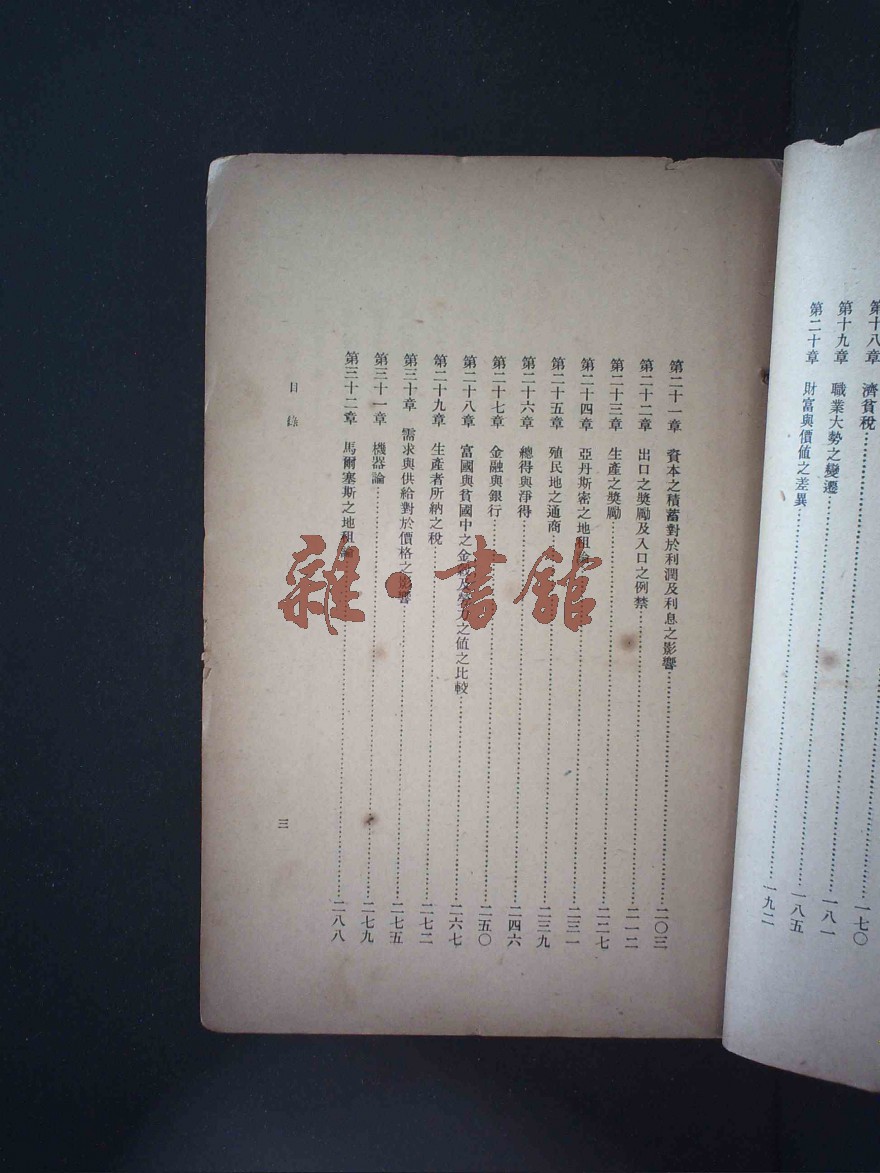 第十八章 濟貧稅……一七〇
第十九章 職業大勢之變遷……一八一
第二十章 財富與價值之差異……一八五
一九二
第二十一章 資本之積蓄對於利潤及利息之影響……二〇三
第二十二章 出口之獎勵及入口之例禁……二一二
第二十三章 生產之獎勵……二二七
第二十四章 亞丹斯密之地租論……二三一
第二十五章 殖民地之通商……二三九
第二十六章 總得與淨得……二四六
第二十七章 金融與銀行……二五〇
第二十八章 富國與貧國中之金穀及勞力之值之比較……二六七
第二十九章 生產者所納之稅……二七二
第三十章 需求與供給對於價格之影響……二七五
第三十一章 機器論……二七九
第三十二章 馬爾塞斯之地租論……二八八
目錄
三
雜·書館